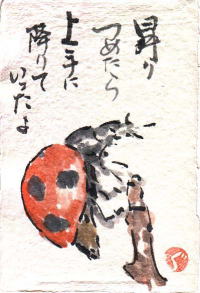 昇り
つめたら
上手に
降りて
いったよ